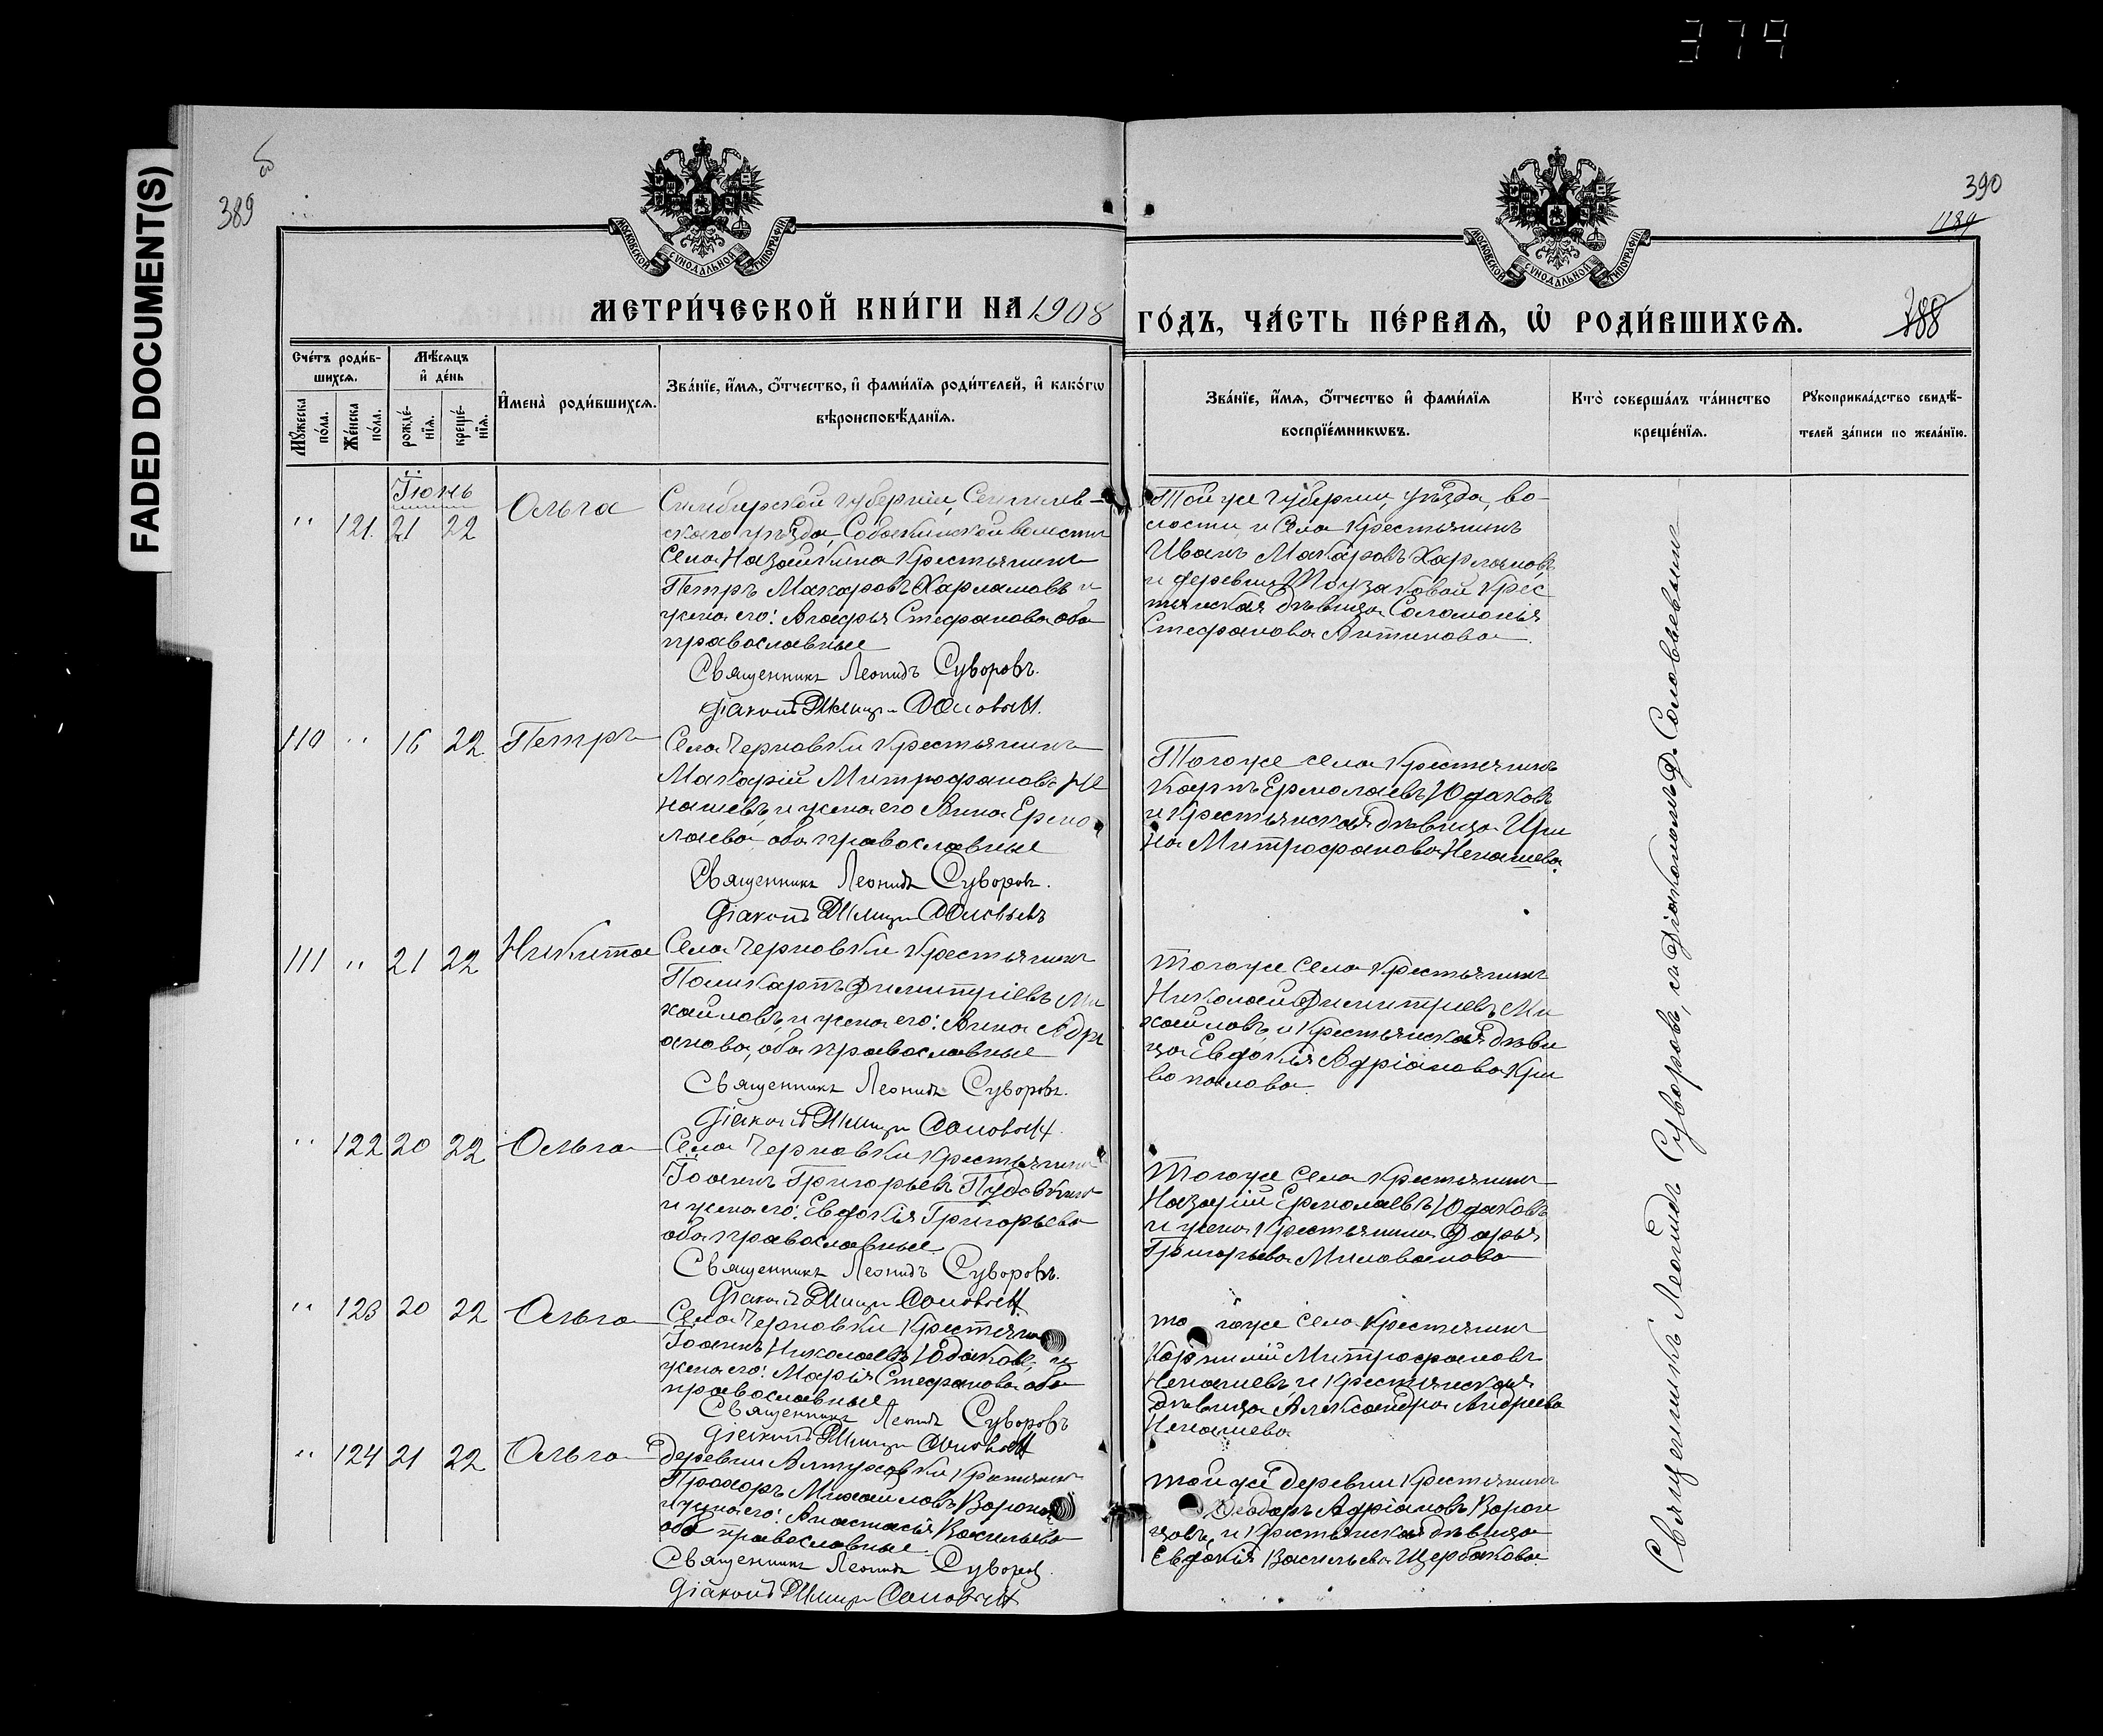 379
FADED DOCUMENT(S)
389
390
1189
388
МОСКОВСКОЙ СУНОДАЛЬНОЙ ТИПОГРАФІИ
МОСКОВСКОЙ СУНОДАЛЬНОЙ ТИПОГРАФІИ
МЕТРИ́ЧЕСКОЙ КНИ́ГИ НА 1908
ГО́ДЪ, ЧА́СТЬ ПЕ́РВАѦ, Ѡ РОДИ́ВШИХСѦ.
Сче́тъ роди́в-
шихсѧ.
Мꙋ́жеска по́ла.
Же́нска по́ла.
Мѣ́сѧцъ
и҆ де́нь
рожде́-
нїѧ.
креще́-
нїѧ.
И҆мена̀ роди́вшихсѧ.
Зва́нїе, и҆́мѧ, ѻ҆́тчество, и҆ фами́лїѧ роди́телей, и҆ како́гѡ
вѣроисповѣ́данїѧ.
Зва́нїе, и҆́мѧ, ѻ҆́тчество и҆ фами́лїѧ
воспрїе́мникѡвъ.
Кто̀ соверша́лъ та́инство
креще́нїѧ.
Рꙋкоприкла́дство свидѣ́-
телей за́писи по жела́нїю.
Іюнь
" 121. 21 22 Ольга
Симбирской губерніи, Сенгилев-
скаго уѣзда, Собакинской волости
села Назайкина крестьянинъ
Петръ Макаровъ Харламовъ и
жена его: Агафья Стефанова оба
православные
Священникъ Леонидъ Суворовъ.
Діаконъ Димитр Соловьевъ.
Той же губерніи, уѣзда, во-
лости и села крестьянинъ
Иванъ Макаровъ Харламовъ
и деревни Шоузаковой крес
тьянская дѣвица Соломонія
Стефанова Антипова.
110 " 16 22 Петръ
Села Черновки крестьянинъ
Макарій Митрофановъ Не
нашевъ, и жена его Анна Ермо
лаева, оба православные
Священникъ Леонидъ Суворовъ.
Діаконъ Димитр Соловьевъ
Того же села крестьянинъ
Карпъ Ермолаевъ Юдаковъ
и крестьянская дѣвица Ири
на Митрофанова Ненашева.
111 " 21 22 Никита
Села Черновки крестьянинъ
Поликарпъ Димитріевъ Ми
хайловъ, и жена его: Анна Адрі
анова, оба православные
Священникъ Леонидъ Суворовъ.
Діаконъ Димитр Соловьевъ.
Того же села крестьянинъ
Николай Димитріевъ Ми
хайловъ, и крестьянская дѣви
ца Евдокія Адріанова Кри
вопалова.
" 122 20 22 Ольга
Села Черновки крестьянинъ
Іоаннъ Григорьевъ Пудовкинъ
и жена его: Евдокія Григорьева
оба православные.
Священникъ Леонидъ Суворовъ.
Діаконъ Димитр Соловьевъ.
Того же села крестьянинъ
Назарій Ермолаевъ Юдаковъ
и жена крестьянина Дарья
Григорьева Милованова
" 123 20 22 Ольга
Села Черновки крестьянинъ
Іоаннъ Николаевъ Юдаковъ, и
жена его: Марія Стефанова оба
православные
Священникъ Леонидъ Суворовъ
Діаконъ Димитр Соловьевъ
то го же села крестьянинъ
Корнилій Митрофановъ
Ненашевъ, и крестьянская
дѣвица Александра Андреева
Ненашева.
" 124 21 22 Ольга
деревни Алтуховки крестьянинъ
Прохоръ Михайловъ
и жена его: Анастасія Васильева
оба православные.
Священникъ Леонидъ Суворовъ.
Діаконъ Димитр Соловьевъ
той же деревни крестьянинъ
Ѳеодоръ Адріановъ Ворон
цовъ, и крестьянская дѣвица
Евдокія Васильева Щербакова.
Священникъ Леонидъ Суворовъ, съ Діакономъ Д. Соловьевымъ